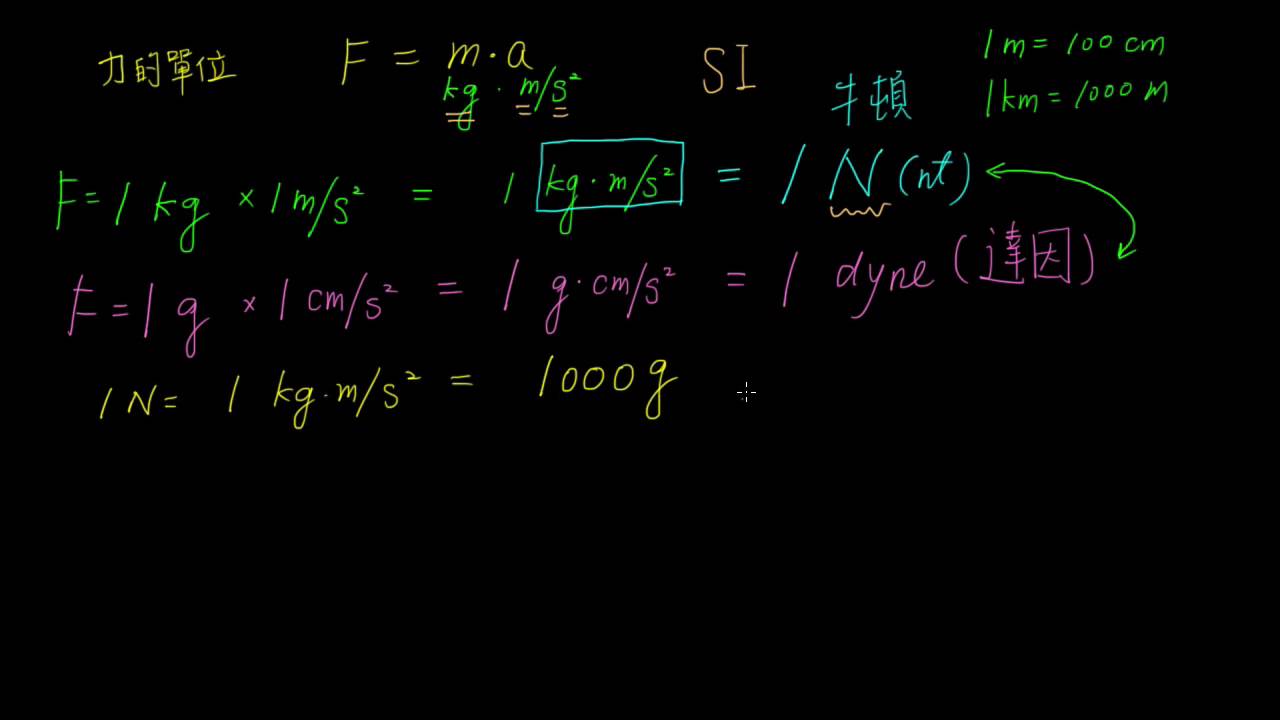 力的單位 F = m・a SI 1m = 100 cm
kg・m/s² 牛頓 1km = 1000 m
F = 1 kg × 1 m/s² = 1 kg・m/s² = 1 N (nt)
F = 1 g × 1 cm/s² = 1 g・cm/s² = 1 dyne (達因)
1 N = 1 kg・m/s² = 1000 g